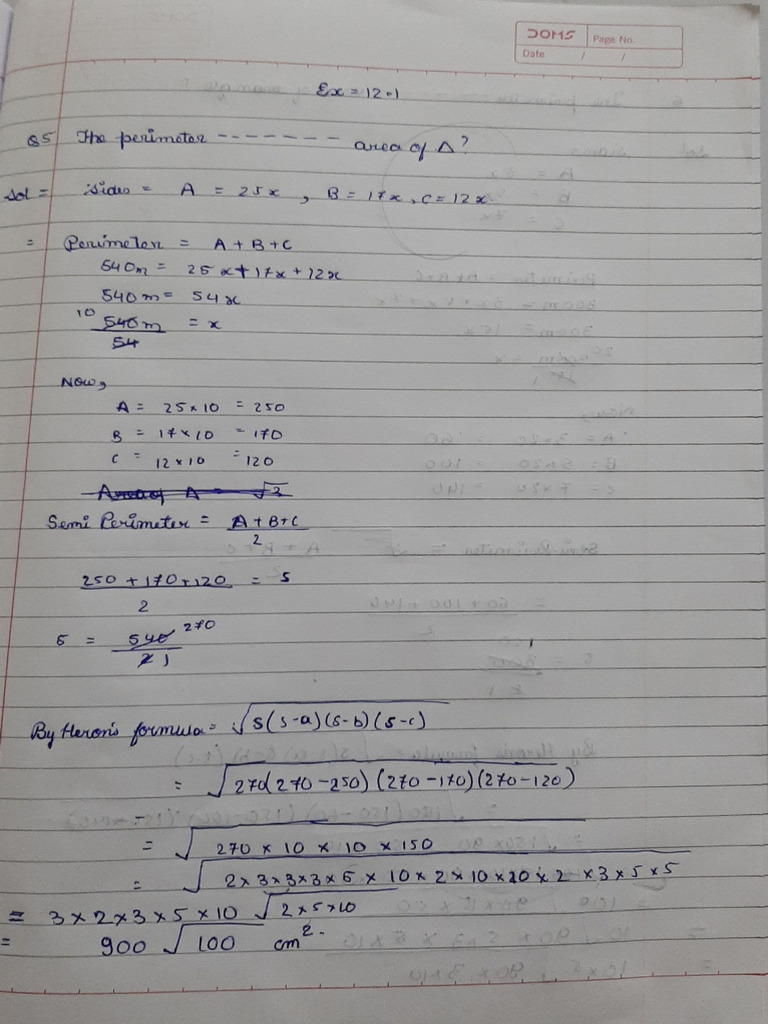 DOMS Page No.
Date / /
Ex = 12.1
Q5 The perimeter ------- area of Δ?
Sol = Sides = A = 25x , B = 17x, C = 12x
= Perimeter = A + B + C
540m = 25x + 17x + 12x
540m = 54x
10
540m = x
54
Now,
A = 25 × 10 = 250
B = 17 × 10 = 170
C = 12 × 10 = 120
Semi Perimeter = A + B + C
2
250 + 170 + 120 = S
2
S = 540 270
2 1
By Heron's formula = √S(S-a)(S-b)(S-c)
= √270(270-250)(270-170)(270-120)
=
= √270 × 10 × 10 × 150
= √2×3×3×3×5 × 10 × 2 × 10 × 10 × 2 × 3 × 5 × 5
= 3 × 2 × 3 × 5 × 10 √2×5×10
= 900 √100 cm².